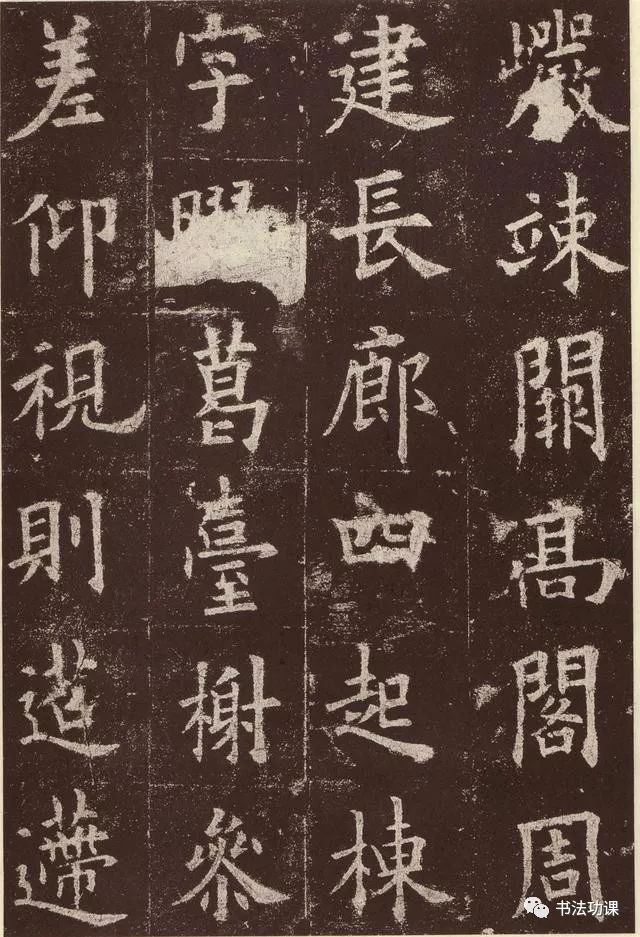 巖竦闕高閣周
建長廊四起棟
宇葛臺榭參
差仰視則迢遰
书法功课